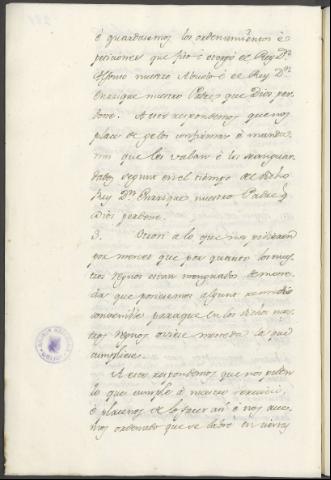 é guardasemos los ordenamientos é
peticiones que fizo é otorgó el Rey Dn
Alfonso nuestro Abuelo é el Rey Dn
Enrique nuestro Padre que Dios per-
done. A esto respondemos que nos
place de gelos confirmar é manda-
mos que les valan é les sean guar-
dados segun en el tiempo del dicho
Rey Dn Enrique nuestro Padre q
Dios perdone.
3. Otrosi a lo que nos pidieron
por merced que por quanto los nues-
tros regnos estan menguados de mone-
da que pusiesemos algun remedio
convenible para que en los dichos nues-
tros regnos oviese moneda la que
cumpliese.
A esto respondemos que nos piden
lo que cumple á nuestro servicio,
é placenos de lo facer asi é nos avemos
ordenado que se labre en ciertos